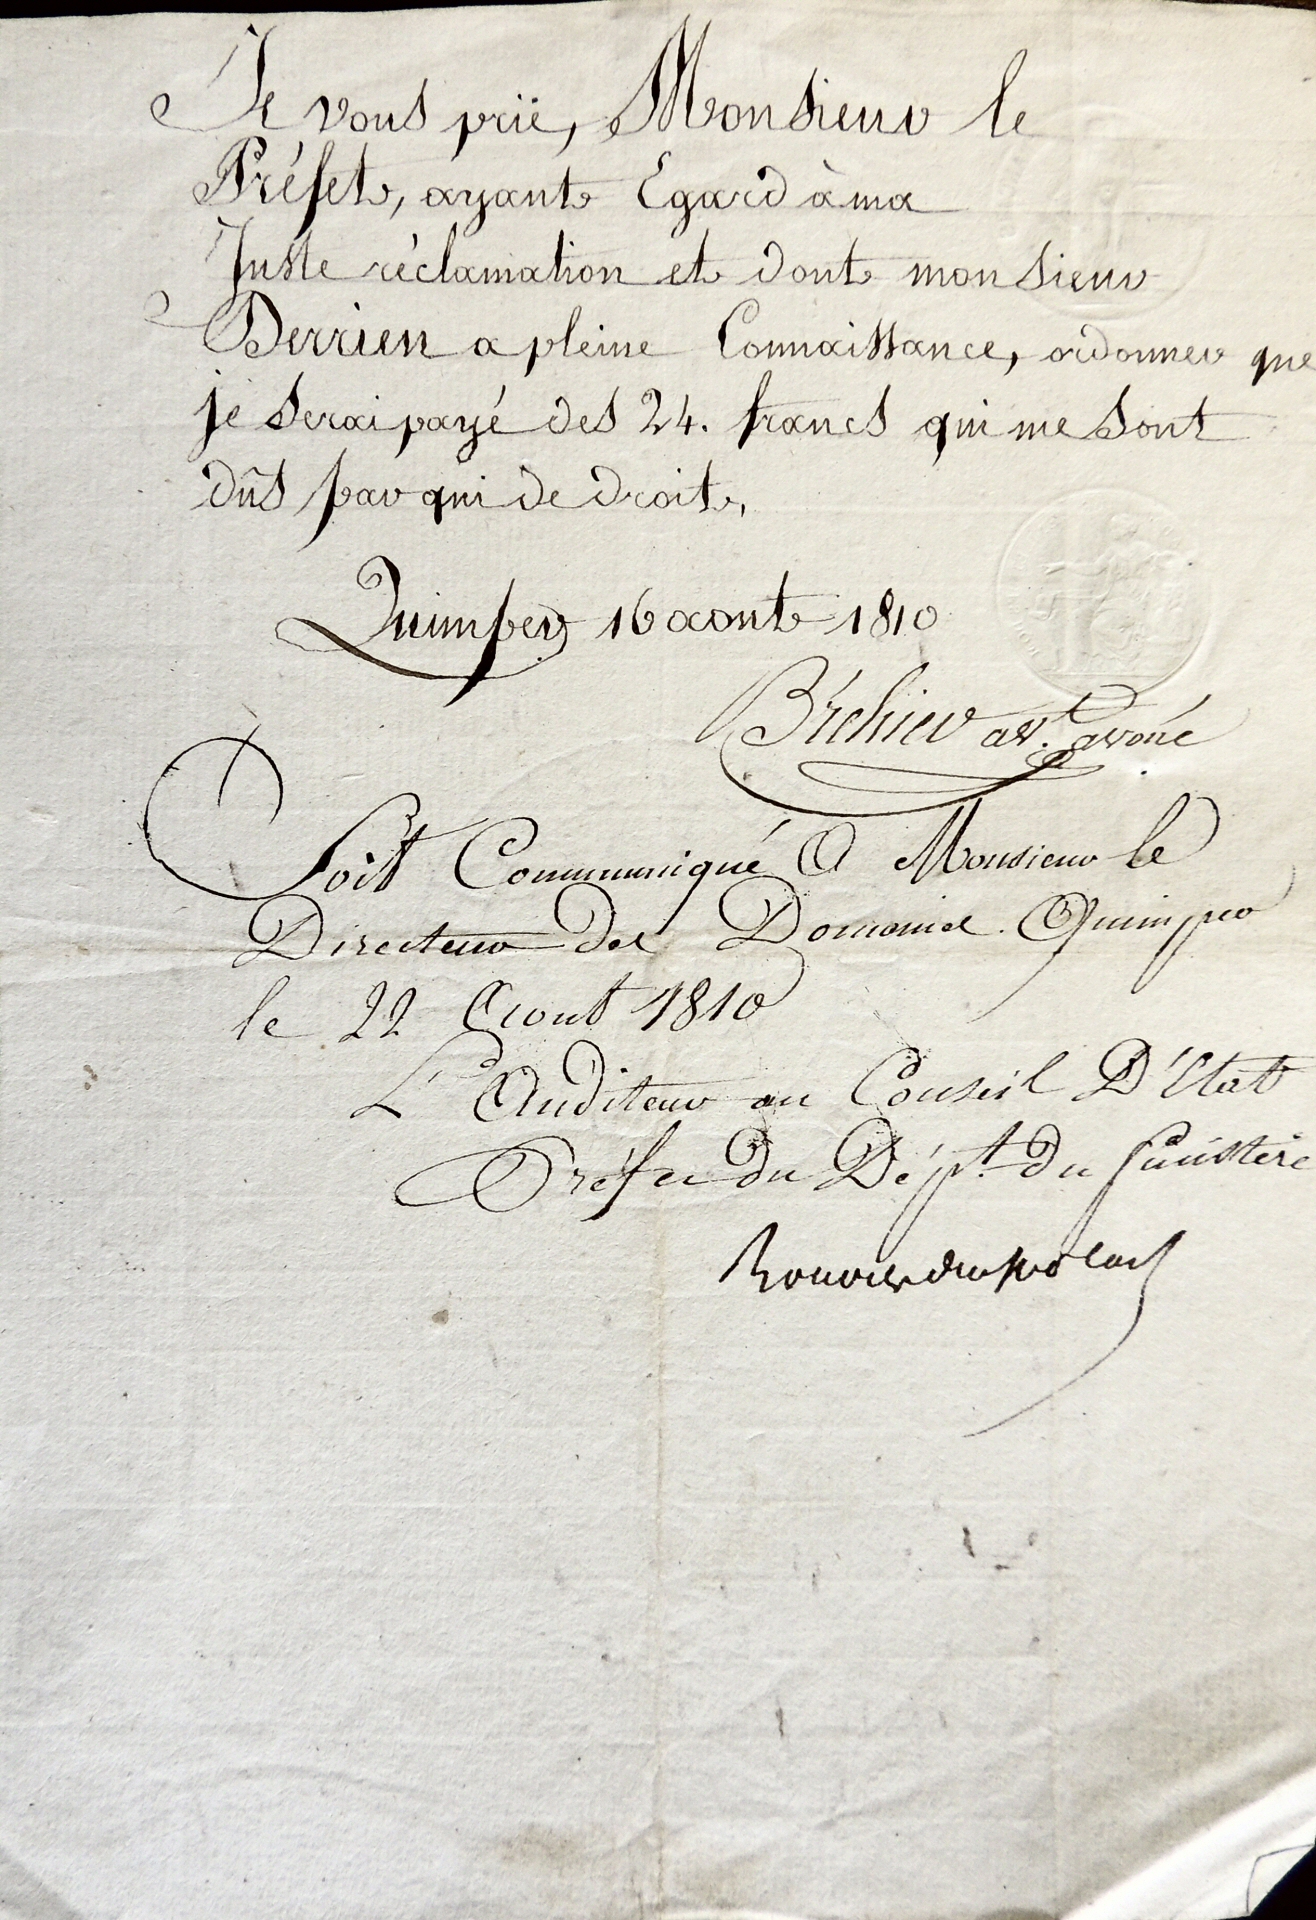 Je vous prie, Monsieur le
Préfet, ayant Egard à ma
Juste réclamation et dont monsieur
Derrien a pleine Connaissance, ordonner que
je serai payé des 24. francs qui me sont
dûs par qui de droit,
Quimper 16 aout 1810
Bréhier av.t avoué
Soit Communiqué A Monsieur le
Directeur des Domaines. Quimper
le 22 Aout 1810
L'Auditeur au Conseil D'Etat
Préfet du Dép.t du finistère